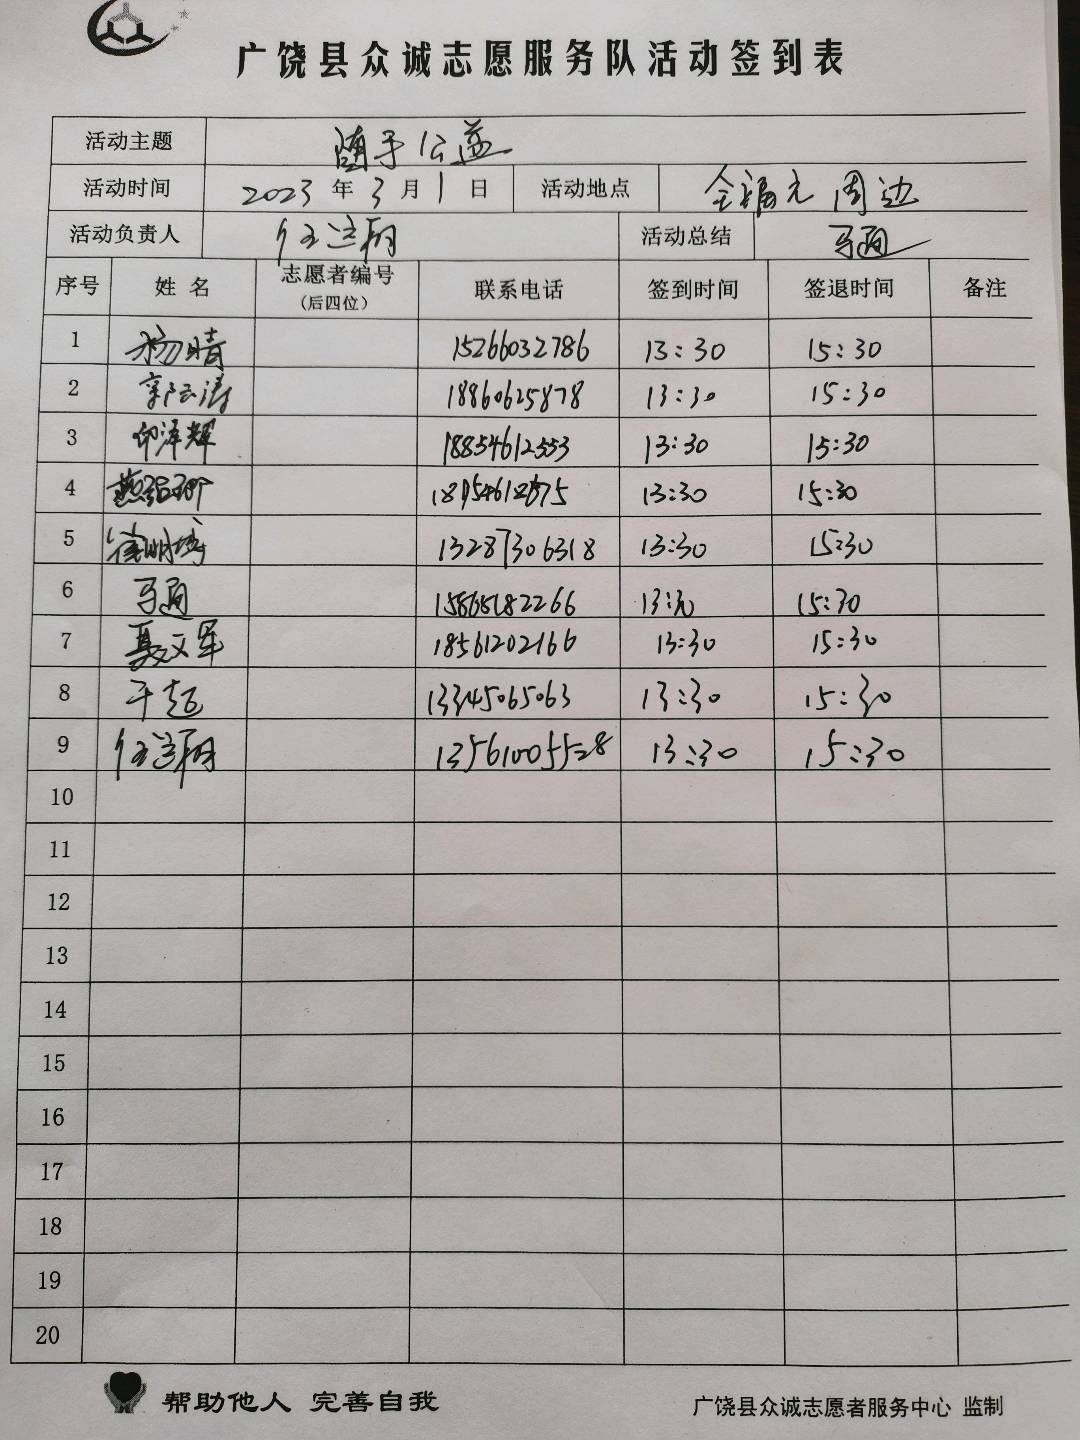 广饶县众诚志愿服务队活动签到表
活动主题 随手公益
活动时间 2023年3月1日 活动地点 全福元周边
活动负责人 任运翔 活动总结 马通
序号 姓名 志愿者编号（后四位） 联系电话 签到时间 签退时间 备注
1 杨晴 15266032786 13:30 15:30
2 18860625878 13:30 15:30
3 13:30 15:30
4 13:30 15:30
5 13287306318 13:30 15:30
6 马通 13:30 15:30
7 聂文军 18561202166 13:30 15:30
8 于超 13345065063 13:30 15:30
9 任运翔 13561005528 13:30 15:30
10
11
12
13
14
15
16
17
18
19
20
帮助他人 完善自我 广饶县众诚志愿者服务中心 监制